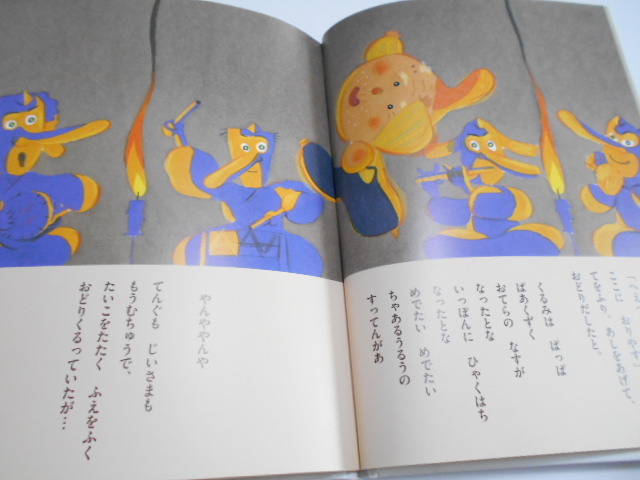 「へえ
ここに おりやす」
てをふり、あしをあげて、
おどりだしたと。
くるみは ぱっぱ
ばあくずく
おてらの なすが
なったとな
いっぽんに ひゃくはち
なったとな
めでたい めでたい
ちゃあるうるうの
すってんがあ
やんややんや
てんぐも じいさまも
もうむちゅうで、
たいこをたたく ふえをふく
おどりくるっていたが…